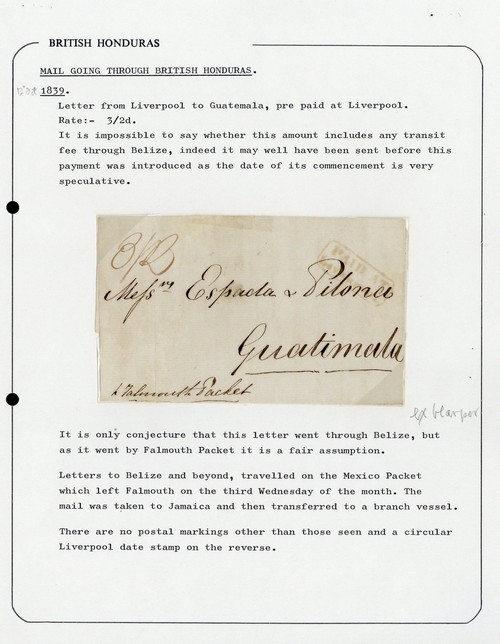 BRITISH HONDURAS
MAIL GOING THROUGH BRITISH HONDURAS.
1839.
Letter from Liverpool to Guatemala, pre paid at Liverpool.
Rate:- 3/2d.
It is impossible to say whether this amount includes any transit
fee through Belize, indeed it may well have been sent before this
payment was introduced as the date of its commencement is very
speculative.
3/2
PAID AT
Messrs Espada & Pilona
Guatimala
Falmouth Packet
ex Harper
It is only conjecture that this letter went through Belize, but
as it went by Falmouth Packet it is a fair assumption.
Letters to Belize and beyond, travelled on the Mexico Packet
which left Falmouth on the third Wednesday of the month. The
mail was taken to Jamaica and then transferred to a branch vessel.
There are no postal markings other than those seen and a circular
Liverpool date stamp on the reverse.